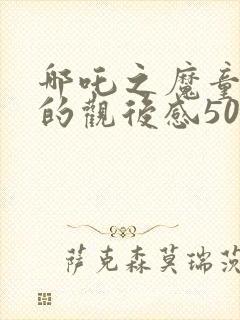 哪吒之魔童
的觀後感50
萨克森莫瑞茨